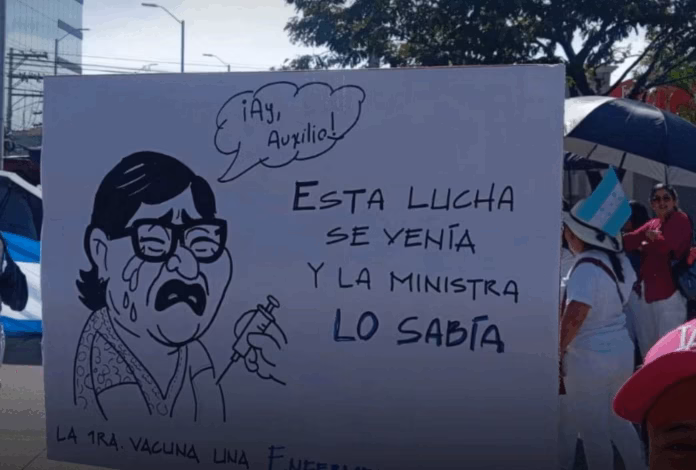 ¡Ay,
Auxilio!
ESTA LUCHA
SE VENÍA
Y LA MINISTRA
LO SABÍA
LA 1RA. VACUNA UNA